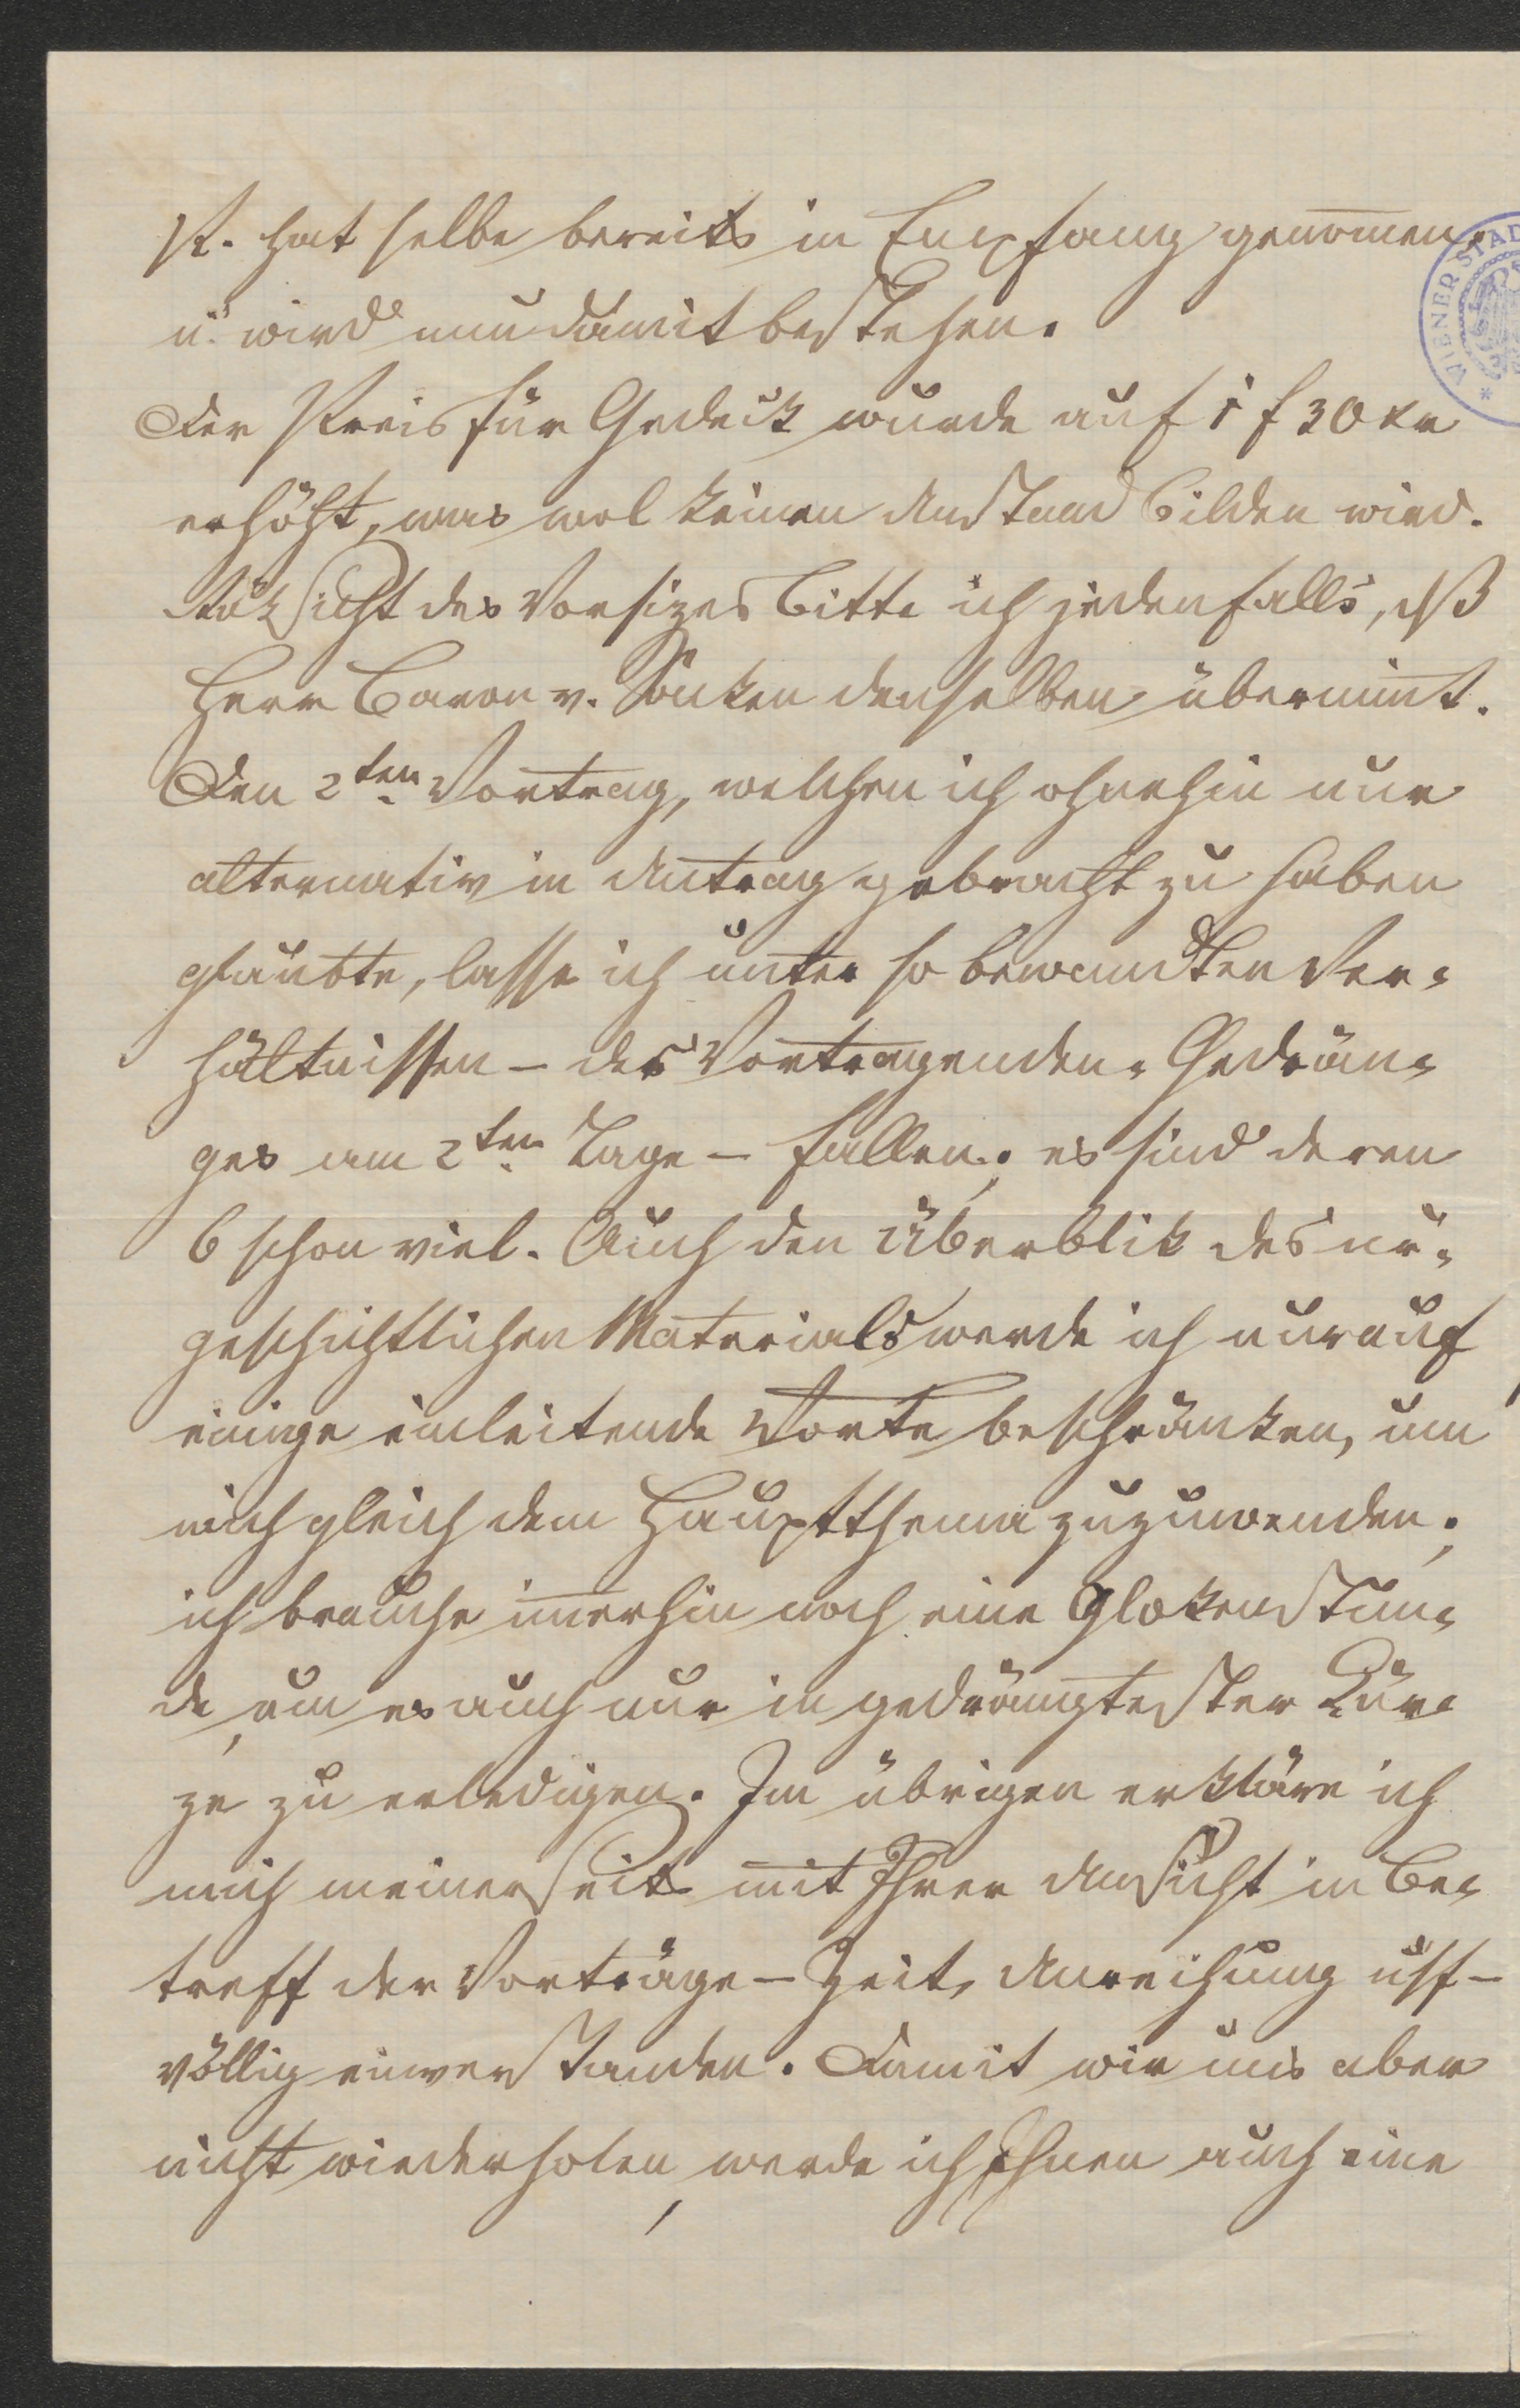 P. hat selbe bereits in Empfang genom̅en,
u. wird nun damit bestehen.
Der Preis für Gedeck wurde auf 1 f 30 kr
erhöht, was wol keinen Anstand bilden wird.
Rüksicht des Vorsizes bitte ich jedenfalls, dß
Herr Baron v. Sacken denselben übernim̅t.
Den 2ten Vortrag, welchen ich ohnehin nur
alternativ in Antrag gebracht zu haben
glaubte, lasse ich unter so bewandten Ver-
hältnissen – des Vortragenden-Gedrän-
ges am 2ten Tage – fallen; es sind deren
6 schon viel. Auch den Überblik des ur-
geschichtlichen Materials werde ich nur auf
einige einleitende Worte beschränken, um
mich gleich dem Hauptthema zuzuwenden;
ich brauche im̅erhin noch eine Glokenstun-
de, um es auch nur in gedrängtester Kür-
ze zu erledigen. Im übrigen erkläre ich
mich meinerseits mit Ihrer Ansicht in Be-
treff der Vorträge – Zeit, Anreihung usf –
völlig einverstanden. Damit wir uns aber
nicht wiederholen, werde ich Ihnen auch eine
WIENER STAD